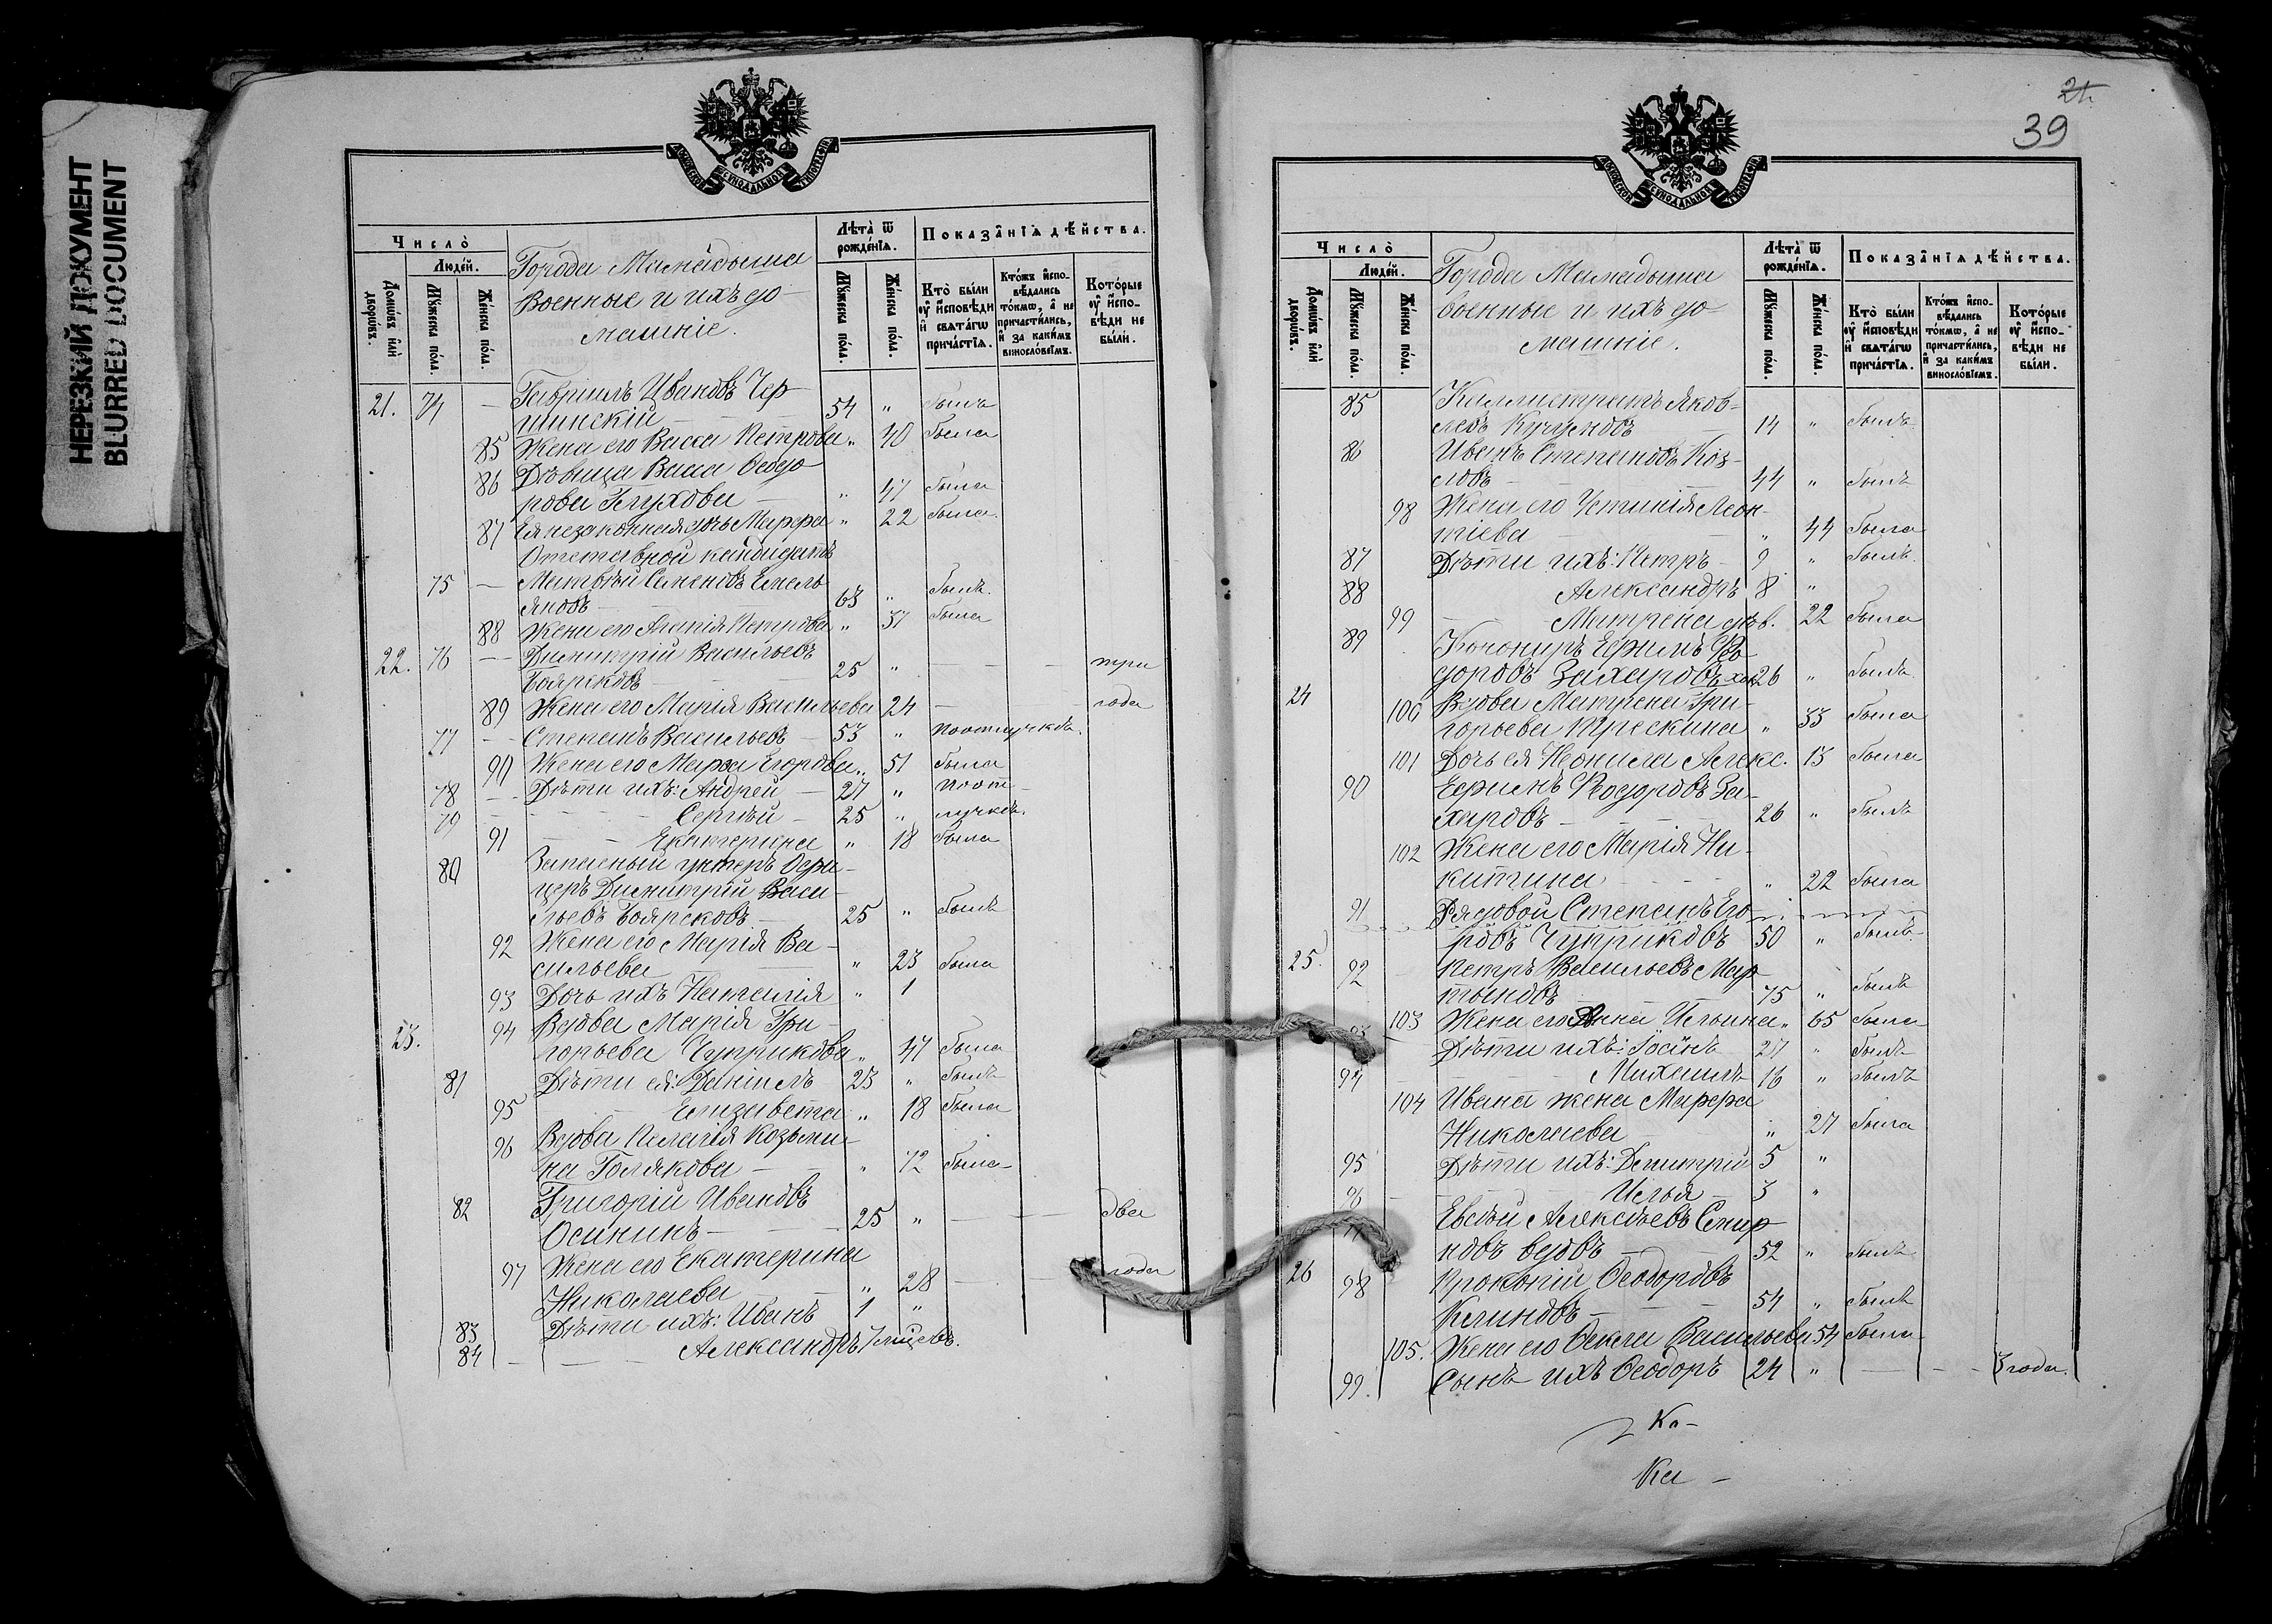 НЕРЕЗКИЙ ДОКУМЕНТ
BLURRED DOCUMENT
МОСКОВСКОЙ СѴНОДАЛЬНОЙ ТИПОГРАФІИ
Число̀
Людей.
Домѡвъ и҆лѝ дворѡвъ.
Мꙋжеска пола.
Женска пола.
Города Мамадыша
Военные и ихъ до
машніе.
Лѣта̀ ѿ рожденїѧ.
Мꙋжеска пола.
Женска пола.
Показанїѧ дѣйства.
Кто̀ были оу҆ и҆сповѣди и҆ свѧтагѡ причастїѧ.
Ктожъ и҆сповѣдались токмѡ, а҆ не причастились, и҆ за какимъ винословїемъ.
Которые оу҆ и҆сповѣди не были.
21. 74 — Гавріилъ Ивановъ Чер
шинскій 54 " былъ
85 Жена его Васса Петрова " 40 была
86 Дѣвица Васса Ѳеодо
рова Глухова — " 47 была
87 Ея незаконная дочь Марѳа " 22 была.
Отставной кандидатъ
75 — Матвѣй Семеновъ Емель
яновъ 63 " былъ.
88 Жена его Агапія Петрова " 57 была
22. 76 — Димитрій Васильевъ
Боярсковъ 25 " — — — три
89 Жена его Марія Васильева 24 — — года
77 — Степанъ Васильевъ 53 " по отлучкѣ.
90 Жена его Марѳа Егорова " 51 была
78 — Дѣти ихъ: Андрей — 27 " по от
79 — Сергѣй — 25 " лучкѣ.
91 — Екатерина " 18 была
80 Запасный унтеръ Офи
церъ Димитрій Васи
льевъ Боярсковъ 25 " былъ
92 Жена его Марія Ва
сильева " 23 была
93 Дочь ихъ Наталія " 1
23. 94 Вдова Марія Гри
горьева Чуприкова " 47 была
81 Дѣти ея: Даніилъ 23 " былъ
95 Елизавета " 18 была
96 Вдова Пелагія Козьми
на Голякова — " 72 была
82 Григорій Ивановъ
Осининъ 25 " — — два
97 Жена его Екатерина
Николаева " 28 — — года
83 Дѣти ихъ: Иванъ 1 "
84 — — Александръ 7 мѣсяцевъ.
24.
39
МОСКОВСКОЙ СѴНОДАЛЬНОЙ ТИПОГРАФІИ
Число̀
Людей.
Домѡвъ и҆лѝ дворѡвъ.
Мꙋжеска пола.
Женска пола.
Города Мамадыша
военные и ихъ до
машніе.
Лѣта̀ ѿ рожденїѧ.
Мꙋжеска пола.
Женска пола.
Показанїѧ дѣйства.
Кто̀ были оу҆ и҆сповѣди и҆ свѧтагѡ причастїѧ.
Ктожъ и҆сповѣдались токмѡ, а҆ не причастились, и҆ за какимъ винословїемъ.
Которые оу҆ и҆сповѣди не были.
85 Каллистратъ Яков
левъ Кучумовъ 14 " былъ
86 Иванъ Степановъ Коз
ловъ 44 " былъ
98 Жена его Устинія Леон
тіева " 44 была
87 Дѣти ихъ: Петръ 9 " былъ
88 Александръ 8 "
99 Матрена дѣв. 22 была
89 Ефимъ Ѳео
доровъ Захаровъ 26 " былъ
24 100 Вдова Матрена Гри
горьева " 33 была
101 Дочь ея Неонила Алекс. 15 была
90 Ефимъ Ѳеодоровъ За
харовъ 26 " былъ
102 Жена его Марія Ни
китина " 22 была
91 Рядовой Степанъ Его
ровъ Чуприковъ 50 " былъ
25. 92 Петръ Васильевъ Мар
тыновъ 75 " былъ
103 Жена его Анна Ильина " 65 была
93 Дѣти ихъ: 27 " былъ
94 Михаилъ 16 " былъ
104 Ивана жена Марѳа
Николаева " 27 была
95 Дѣти ихъ: Димитрій 5 "
96 Илья 3 "
97 Евсѣй Алексѣевъ Смир
новъ вдовъ 52 " былъ
26 98 Прокопій Ѳеодоровъ
Клиновъ 54 " былъ
105. Жена его Ѳекла Васильева 54 была
99. Сынъ ихъ Ѳеодоръ 24 " — — 3 года.
Ка